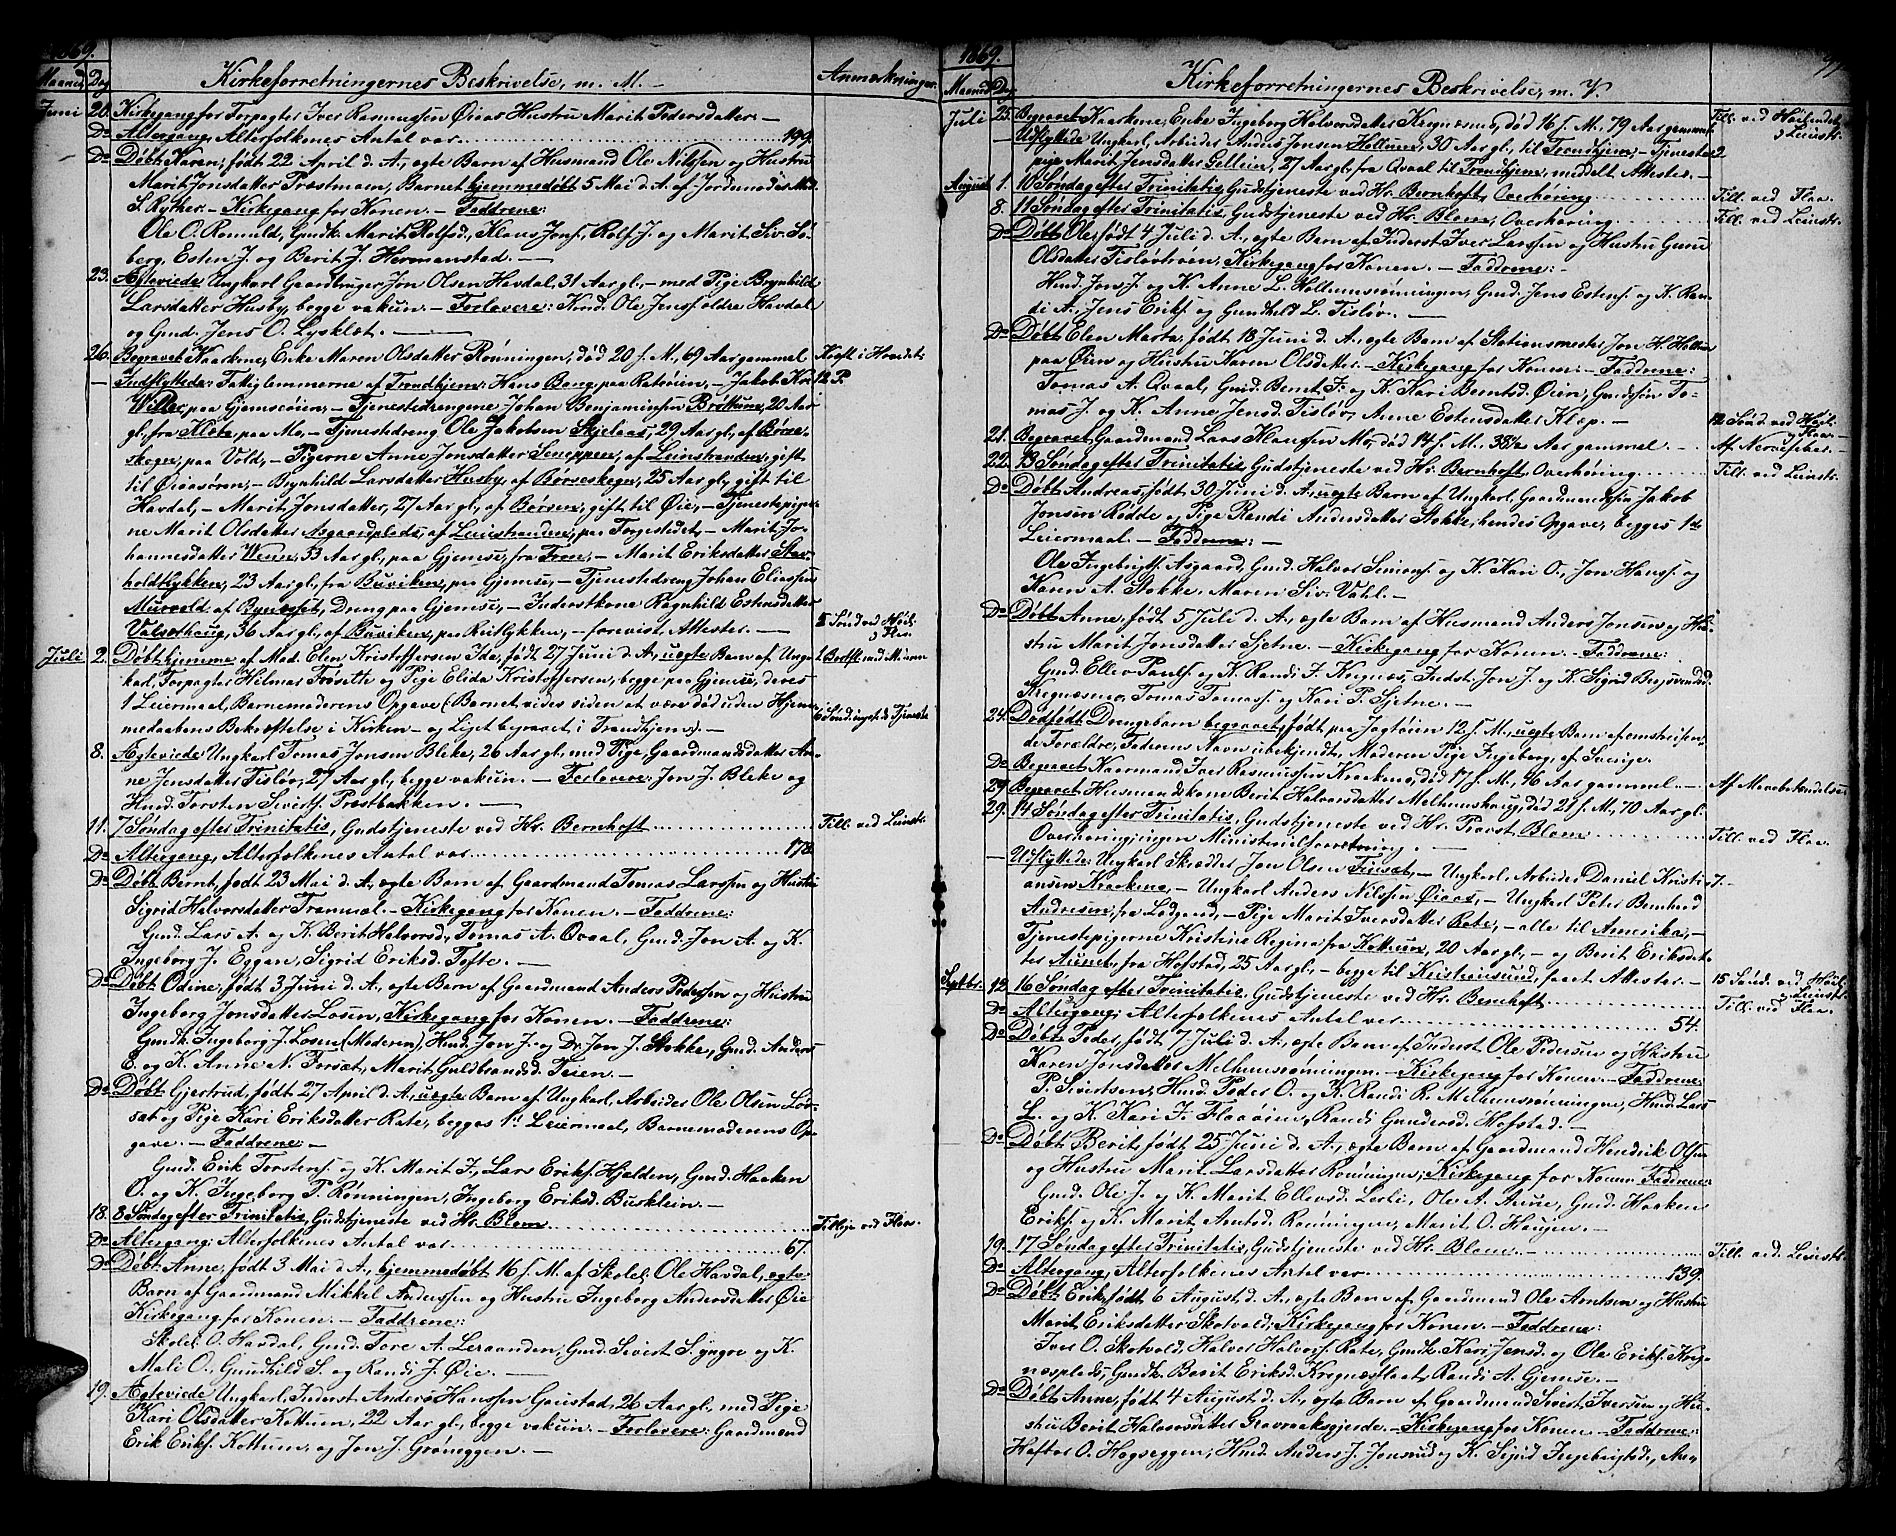 1869.
Maaned Dag Kirkeforretningernes Beskrivelse, m. M. Anmærkninger
Juni 20. Kirkegang for Forpagter Iver Rasmussen Øiaas Hustru Marit Pedersdatter. —
Do Altergang, Alterfolkenes Antal var 199.
Do Døbt Karen, født 22 April d. A., egte Barn af Husmand Ole Nilssen og Hustru
Marit Jonsdatter Prestmam, Barnet hjemmedøbt 5 Mai d. A. af Jordmoder Md.
S. Ryther. — Kirkegang for Konen. — Faddrene:
Ole O. Romuld, Gmdk. Marit Rolfsd., Klaus Jons., Rolf J. og Marit Siv. Sø-
berg, Esten J. og Berit J. Hermanstad. —
23. Ægteviede Ungkarl Gaardbruger Jon Olsen Havdal, 31 Aar gl., — med Pige Brynhild
Larsdatter Husby, begge vakcin. — Forlovere: Ole Jensf. ældre Havdal
og Gmd. Jens O. Lysklæt. —
26. Begravet Kaarkone, Enke Maren Olsdatter Rønningen, død 20 f. M., 69 Aar gammel
— Indflyttede: Fatiglemmerne af Trondhjem: Hans Bang, paa Ratsøien, — Jakob
paa Gjemseøien, — Tjenestedrengene Johan Benjaminsen 20 Aar
gl., fra Klæte, paa Mo, — Tjenestedreng Ole Jakobsen Skjelaas, 29 Aar gl., af Børse-
skogn, paa Vold, — Pigerne Anne Jonsdatter Sneppen, af Leinstranden, gift
til Øiaasøren, — Brynhild Larsdatter Husby, af Børseskogn, 25 Aar gl., gift til
Havdal, — Marit Jonsdatter, 27 Aar gl., af Børsen, gift til Øie, — Tjenestepiger-
ne Marit Olsdatter af Leinstranden, paa — Marit Jo-
hannesdatter 33 Aar gl., paa Gjemse, fra — Marit Eriksdatter Stav-
holdtlykken, 23 Aar gl., fra Buviken, paa Gjemse, — Tjenestedreng Johan Eliassen
Murvold af Bynæsset, Dreng paa Gjemse, — Inderstkone Ragnhild Estensdatter
Valsethaug, 36 Aar gl., af Buviken, paa — forevist Attester. — 5 Sønd. ved Høil.
Juli 2. Døbt hjemme af Mad. Elen Kristoffersen Ida, født 27 Juni d. A., uegte Barn af Ung-
karl, Forpagter Hilmar Frisette og Pige Elida Kristoffersen, begge paa Gjemse, deres
1 Leiermaal, Barnemoderens Opgave (Barnet vides siden at være død uden Hjem-
medaabens Bekræftelse i Kirken — og Liget begravet i Trondhjem). —
8. Ægteviede Ungkarl Tomas Jonsen Bleke, 26 Aar gl., med Pige, Gaardmandsdatter An-
ne Jensdatter Tisløv, 27 Aar gl., begge vakcin. — Forlovere: Jon J. Bleke og
Husmd. Torsten Sivertf. Prestbakken. —
11. 7 Søndag efter Trinitatis, Gudstjeneste ved Hr. Bernhoft Till. ved Leinstr.
Do Altergang, Alterfolkenes Antal var 178
Do Døbt Bernt, født 23 Mai d. A., egte Barn af Gaardmand Tomas Larssen og Hustru
Sigrid Halvorsdatter Tranmæl. — Kirkegang for Konen. — Faddrene:
Gmd. Lars A. og K. Berit Halvorsd., Tomas A. Qvaal, Gmd. Jon A. og K.
Ingeborg J. Eggan, Sigrid Eriksd. Tofte. —
Do Døbt Odine, født 3 Juni d. A., egte Barn af Gaardmand Anders Pedersen og Hustru
Ingeborg Jonsdatter Losen, Kirkegang for Konen. — Faddrene:
Gmdk. Ingeborg J. Losen (Moderen), Husmd. Jon J. og Dr. Jon J. Stokke, Gmd. Anders
E. og K. Anne N. Forsæt, Marit Guldbrandsd. Teien. —
Do Døbt Gjertrud, født 27 April d. A., uegte Barn af Ungkarl, Arbeider Ole Olsen Løv-
sat og Pige Kari Eriksdatter Rate, begges 1ste Leiermaal, Barnemoderens Op-
gave. — Faddrene: —
Gmd. Erik Torstens. og K. Marit J., Lars Eriks. Hjelden, Gmd. Haaken
O. og K. Ingeborg P. Rønningen, Ingeborg Eriksd. Busklein. —
18. 8 Søndag efter Trinitatis, Gudstjeneste ved Hr. Blom Tillige ved Flaa.
Do Altergang: Alterfolkenes Antal var 67.
Do Døbt Anne, født 3 Mai d. A., hjemmedøbt 16 f. M. af Skolel. Ole Havdal, egte
Barn af Gaardmand Mikkel Anderssen og Hustru Ingeborg Andersdatter Øie
Kirkegang for Konen. — Faddrene:
Skolel. O. Havdal, Gmd. Tore A. Leraanden, Gmd. Sivert S. yngre og K.
Mali O., Gunhild S. og Randi J. Øie. —
19. Ægteviede Ungkarl, Inderst Anders Hanssen Gaustad, 26 Aar gl., med Pige
Kari Olsdatter Kottum, 22 Aar gl., begge vakcin. — Forlovere: Gaardmand
Erik Eriks. Kottum, og Jon J. Grøneggen. —
1869.
Maaned Dag Kirkeforretningernes Beskrivelse, m. V.
Juli 25. Begravet Kaarkone, Enke Ingeborg Halvorsdatter Kregnæsmo, død 16 f. M., 79 Aar gammel. Till. ved Høilandet
— Udflyttede Ungkarl, Arbeider Anders Jonsen Hollum, 30 Aar gl., til Trondhjem, — Tjeneste- og Leinstr.
pige Marit Jensdatter Gellein, 27 Aar gl., fra Qvaal til Trondhjem, meddelt Attester. —
August 1. 10 Søndag efter Trinitatis, Gudstjeneste ved Hr. Bernhoft, Overhøring Till. ved Flaa.
8. 11 Søndag efter Trinitatis, Gudstjeneste ved Hr. Blom, Overhøring Till. ved Leinstr.
Do Døbt Ole, født 4 Juli d. A., egte Barn af Inderst Iver Larssen og Hustru Guru
Olsdatter Tisløvtroen, Kirkegang for Konen. — Faddrene: —
Husmd. Jon J. og K. Anne L. Hollumsrønningen, Gmd. Jens Estens. og K. Ran-
di A., Jens Eriks. og Gunhild L. Tisløv. —
Do Døbt Elen Marta, født 18 Juni d. A., egte Barn af Stationsmester Jon H. Hollum
paa Øien og Hustru Karen Olsdatter. — Kirkegang for Konen. — Faddrene:
Tomas A. Qvaal, Gmd. Bernt F. og K. Kari Berntsd. Øien, To-
mas J. og K. Anne Jensd. Tisløv, Anne Estensdatter Klæp. — 12 Sønd. ved Høil.
21. Begravet Gaardmand Lars Klausen Mo, død 14 f. M., 38½ Aar gammel. — Af Nervefeber. —
22. 13 Søndag efter Trinitatis, Gudstjeneste ved Hr. Bernhoft, Overhøring. Till. ved Leinstr.
Do Døbt Andreas, født 30 Juni d. A., uegte Barn af Ungkarl, Gaardmandssøn Jakob
Jonsen Rødde og Pige Randi Andersdatter Stokke, hendes Opgave, begges 1ste
Leiermaal. — Faddrene: —
Ole Ingebrigts. Asgaard, Gmd. Halvor Simons. og K. Kari O., Jon Hans. og
Karen A. Stokke, Maren Siv. Vahl. —
Do Døbt Anne, født 5 Juli d. A., egte Barn af Husmand Anders Jonsen og Hu-
stru Marit Jonsdatter Sjetne. — Kirkegang for Konen. — Faddrene:
Gmd. Ellev Pauls. og K. Randi F. Kregnæs, Indst. Jon J. og K. Sigrid Brynsvendsd.
Kregnæsmo, Tomas Tomas. og Kari P. Sjetne. —
24. Dødfødt Drengebarn begravet, født paa Jagtøien 12 f. M., uegte Barn af omstreifen-
de Forældre, Faderens Navn ubekjendt, Moderen Pige Ingeborg, af Sverige.
Do Begravet Kaarmand Iver Rasmussen Kraakmo, død 17 f. M., 96 Aar gammel. —
29. Begravet Husmandskone Berit Halvorsdatter Melhumshaug, død 21 f. M., 70 Aar gl. Af Mavebetændelse
29. 14 Søndag efter Trinitatis, Gudstjeneste ved Hr. Provst Blom Till. ved Flaa.
Overhøring, ingen Ministerialforretning. —
— Udflyttede: Ungkarl Skrædder Jon Olsen — Ungkarl, Arbeider Daniel Kristi- 7. —
ansen Kraakmo, — Ungkarl Anders Nilssen Øiaas, — Ungkarl Peter Bernhard
Andresen, fra Lodgaard, — Pige Marit Iversdatter Rate, — alle til Amerika, —
Tjenestepigerne Kristine Regina fra Kottum, 20 Aar gl., — og Berit Eriksdat-
ter Aunet, fra Hofstad, 25 Aar gl., — begge til Kristiansund, faaet Attester. —
Septbr. 12. 16 Søndag efter Trinitatis, Gudstjeneste ved Hr. Bernhoft 15 Sønd. ved Høil. og Leinstr.
Do Altergang; Alterfolkenes Antal var 54. Till. ved Flaa.
Do Døbt Peder, født 7 Juli d. A., egte Barn af Inderst Ole Pedersen og Hustru
Karen Jonsdatter Melhumsrønningen. — Kirkegang for Konen. — Faddrene:
P. Sivertsen, Husmd. Peder O. og K. Randi R. Melhumsrønningen, Husmd. Lars
L. og K. Kari F. Flaaøien, Randi Gundersd. Hofstad. —
Do Døbt Berit, født 25 Juni d. A., egte Barn af Gaardmand Hendrik Olsen
og Hustru Marit Larsdatter Rønningen; Kirkegang for Konen. Faddrene
Gmd. Ole J. og K. Marit Ellevsd. Lerli, Ole A. Aune, Gmd. Haaken
Eriks. og K. Marit Arntsd. Rønningen, Marit O. Haugen. —
19. 17 Søndag efter Trinitatis, Gudstjeneste ved Hr. Blom. Till. ved Leinstr.
Do Altergang, Alterfolkenes Antal var 139.
Do Døbt Erik, født 6 August d. A., egte Barn af Gaardmand Ole Arntsen og Hustru
Marit Eriksdatter Skotvold, Kirkegang for Konen. — Faddrene:
Iver O. Skotvold, Halvor Halvors. Rate, Gmdk. Kari Jensd. og Ole Eriks. Kreg-
næsplads, Gmdk. Berit Eriksd. Kregnæsflaat, Randi A. Gjemse. —
Do Døbt Anne, født 4 August d. A., egte Barn af Gaardmand Sivert Iversen og Hu-
stru Berit Halvorsdatter Gravraaksgjerde. — Kirkegang for Konen. — Faddrene:
Hoftor O. Hagseggen, Husmd. Anders J. Jonsrud og K. Sigrid Ingebrigtsd., An-